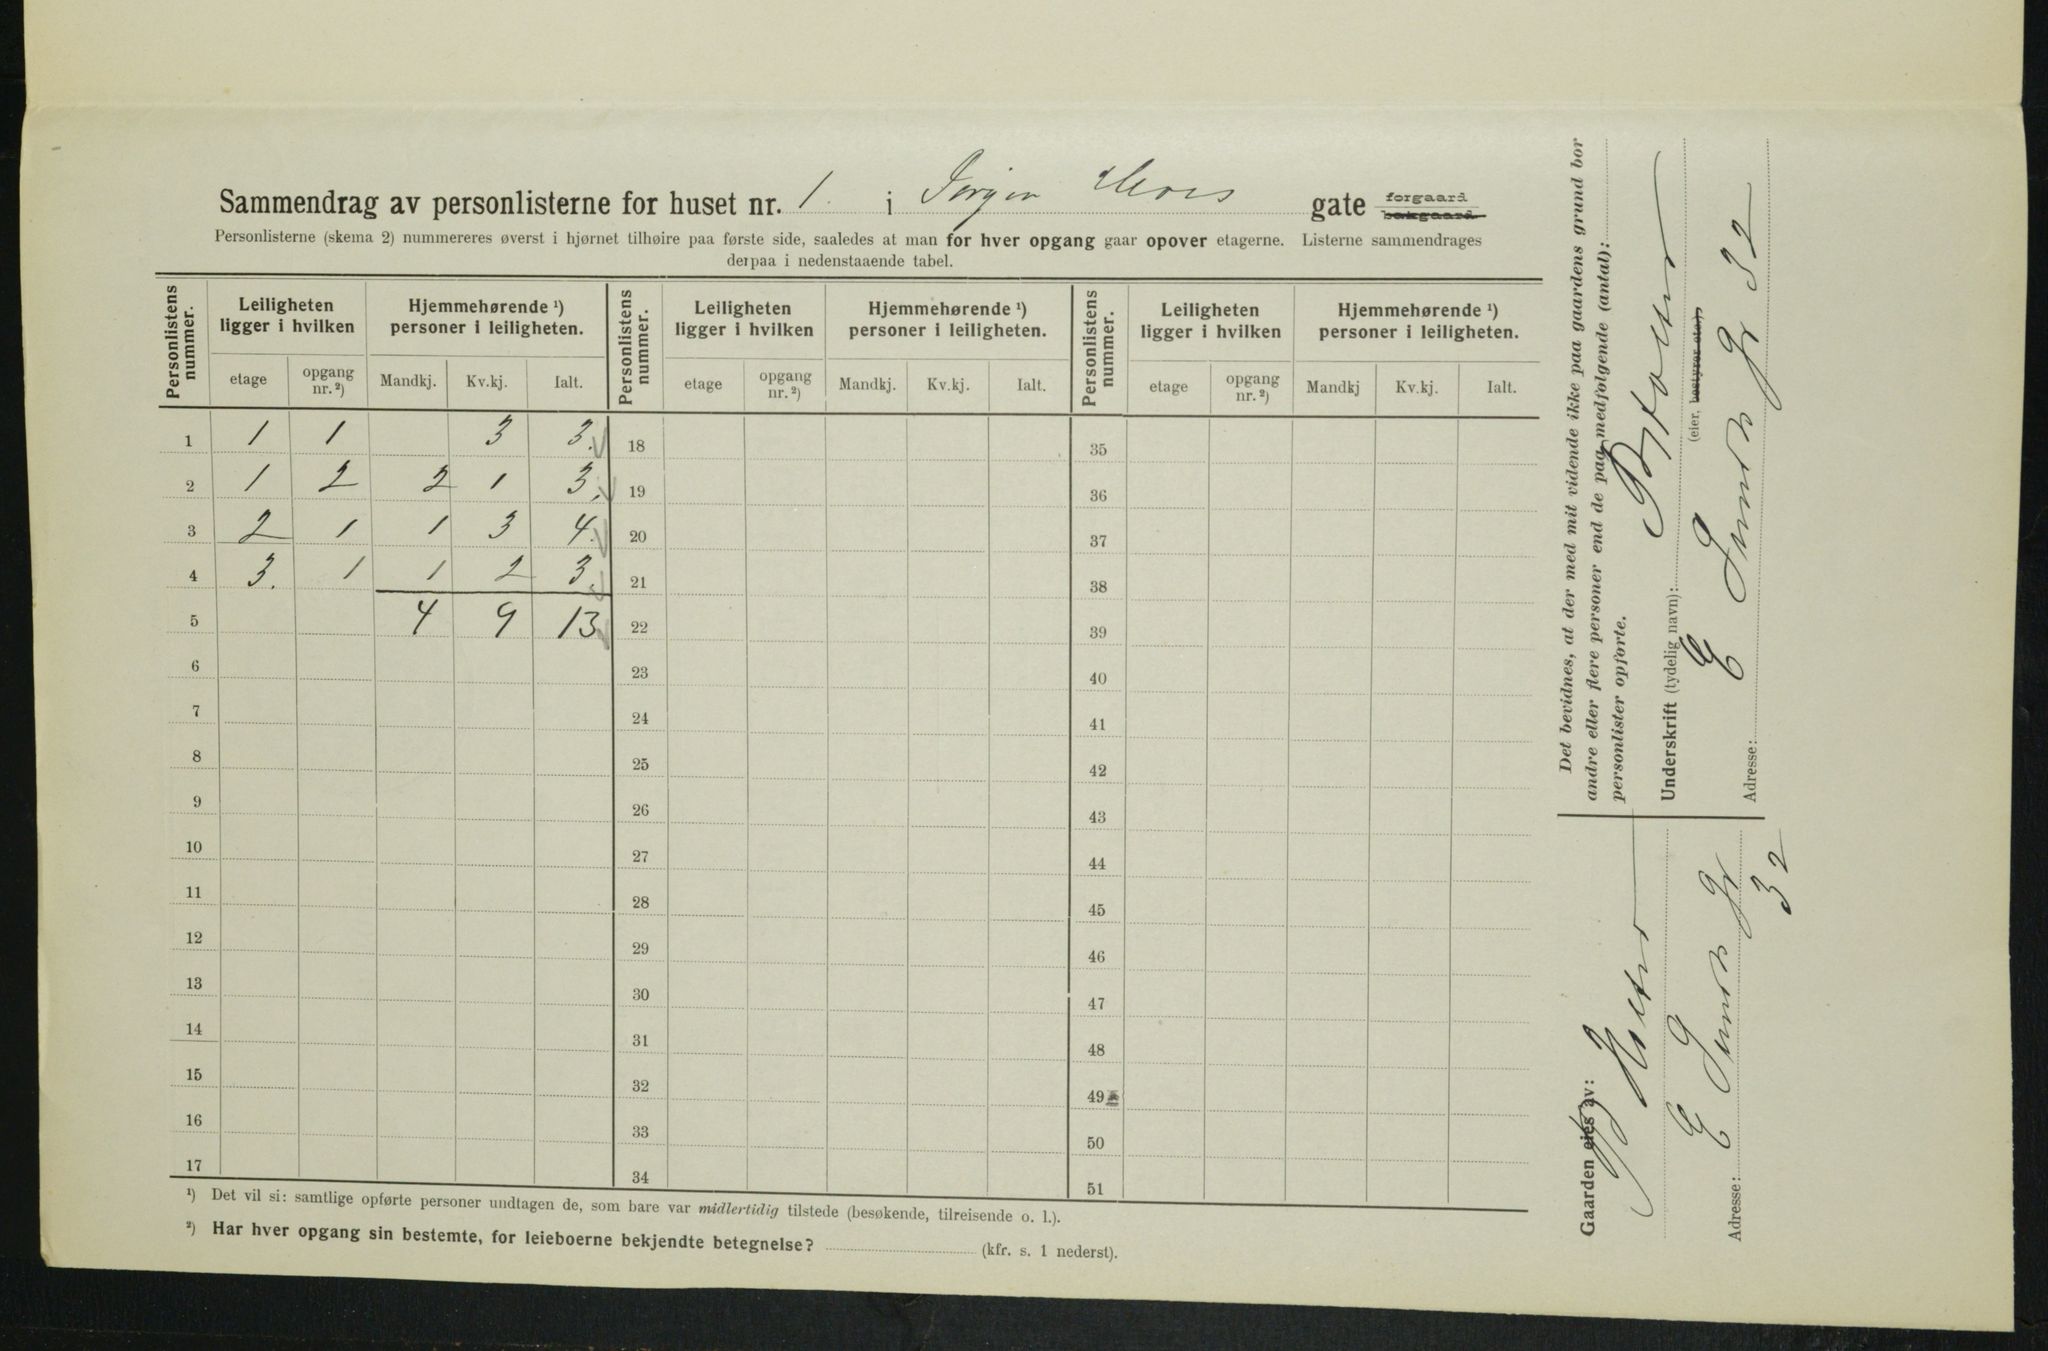 Sammendrag av personlisterne for huset nr. 1. i Jørgen Moes gate forgaard bakgaard
Personlisterne (skema 2) nummereres øverst i hjørnet tilhøire paa første side, saaledes at man for hver opgang gaar opover etagerne. Listerne sammendrages
derpaa i nedenstaaende tabel.
Personlistens nummer. Leiligheten ligger i hvilken Hjemmehørende ¹) personer i leiligheten. Personlistens nummer. Leiligheten ligger i hvilken Hjemmehørende ¹) personer i leiligheten. Personlistens nummer. Leiligheten ligger i hvilken Hjemmehørende ¹) personer i leiligheten.
etage opgang nr. ²) Mandkj. Kv.kj. Ialt. etage opgang nr. ²) Mandkj. Kv.kj. Ialt. etage opgang nr. ²) Mandkj Kv.kj. Ialt.
1 1 1 3 3. 18 35
2 1 2 2 1 3. 19 36
3 2 1 1 3 4. 20 37
4 3. 1 1 2 3. 21 38
5 4 9 13 22 39
6 23 40
7 24 41
8 25 42
9 26 43
10 27 44
11 28 45
12 29 46
13 30 47
14 31 48
15 32 49
16 33 50
17 34 51
¹) Det vil si: samtlige opførte personer undtagen de, som bare var midlertidig tilstede (besøkende, tilreisende o. l.).
²) Har hver opgang sin bestemte, for leieboerne bekjendte betegnelse? (kfr. s. 1 nederst).
Det bevidnes, at der med mit vidende ikke paa gaardens grund bor
andre eller flere personer end de paa medfølgende (antal):
personlister opførte.
Underskrift (tydelig navn): Holter
(eier, bestyrer etc.)
Adresse: E Sunds gt 32
Gaarden eies av:
Holter
E Sunds gt
Adresse: 32